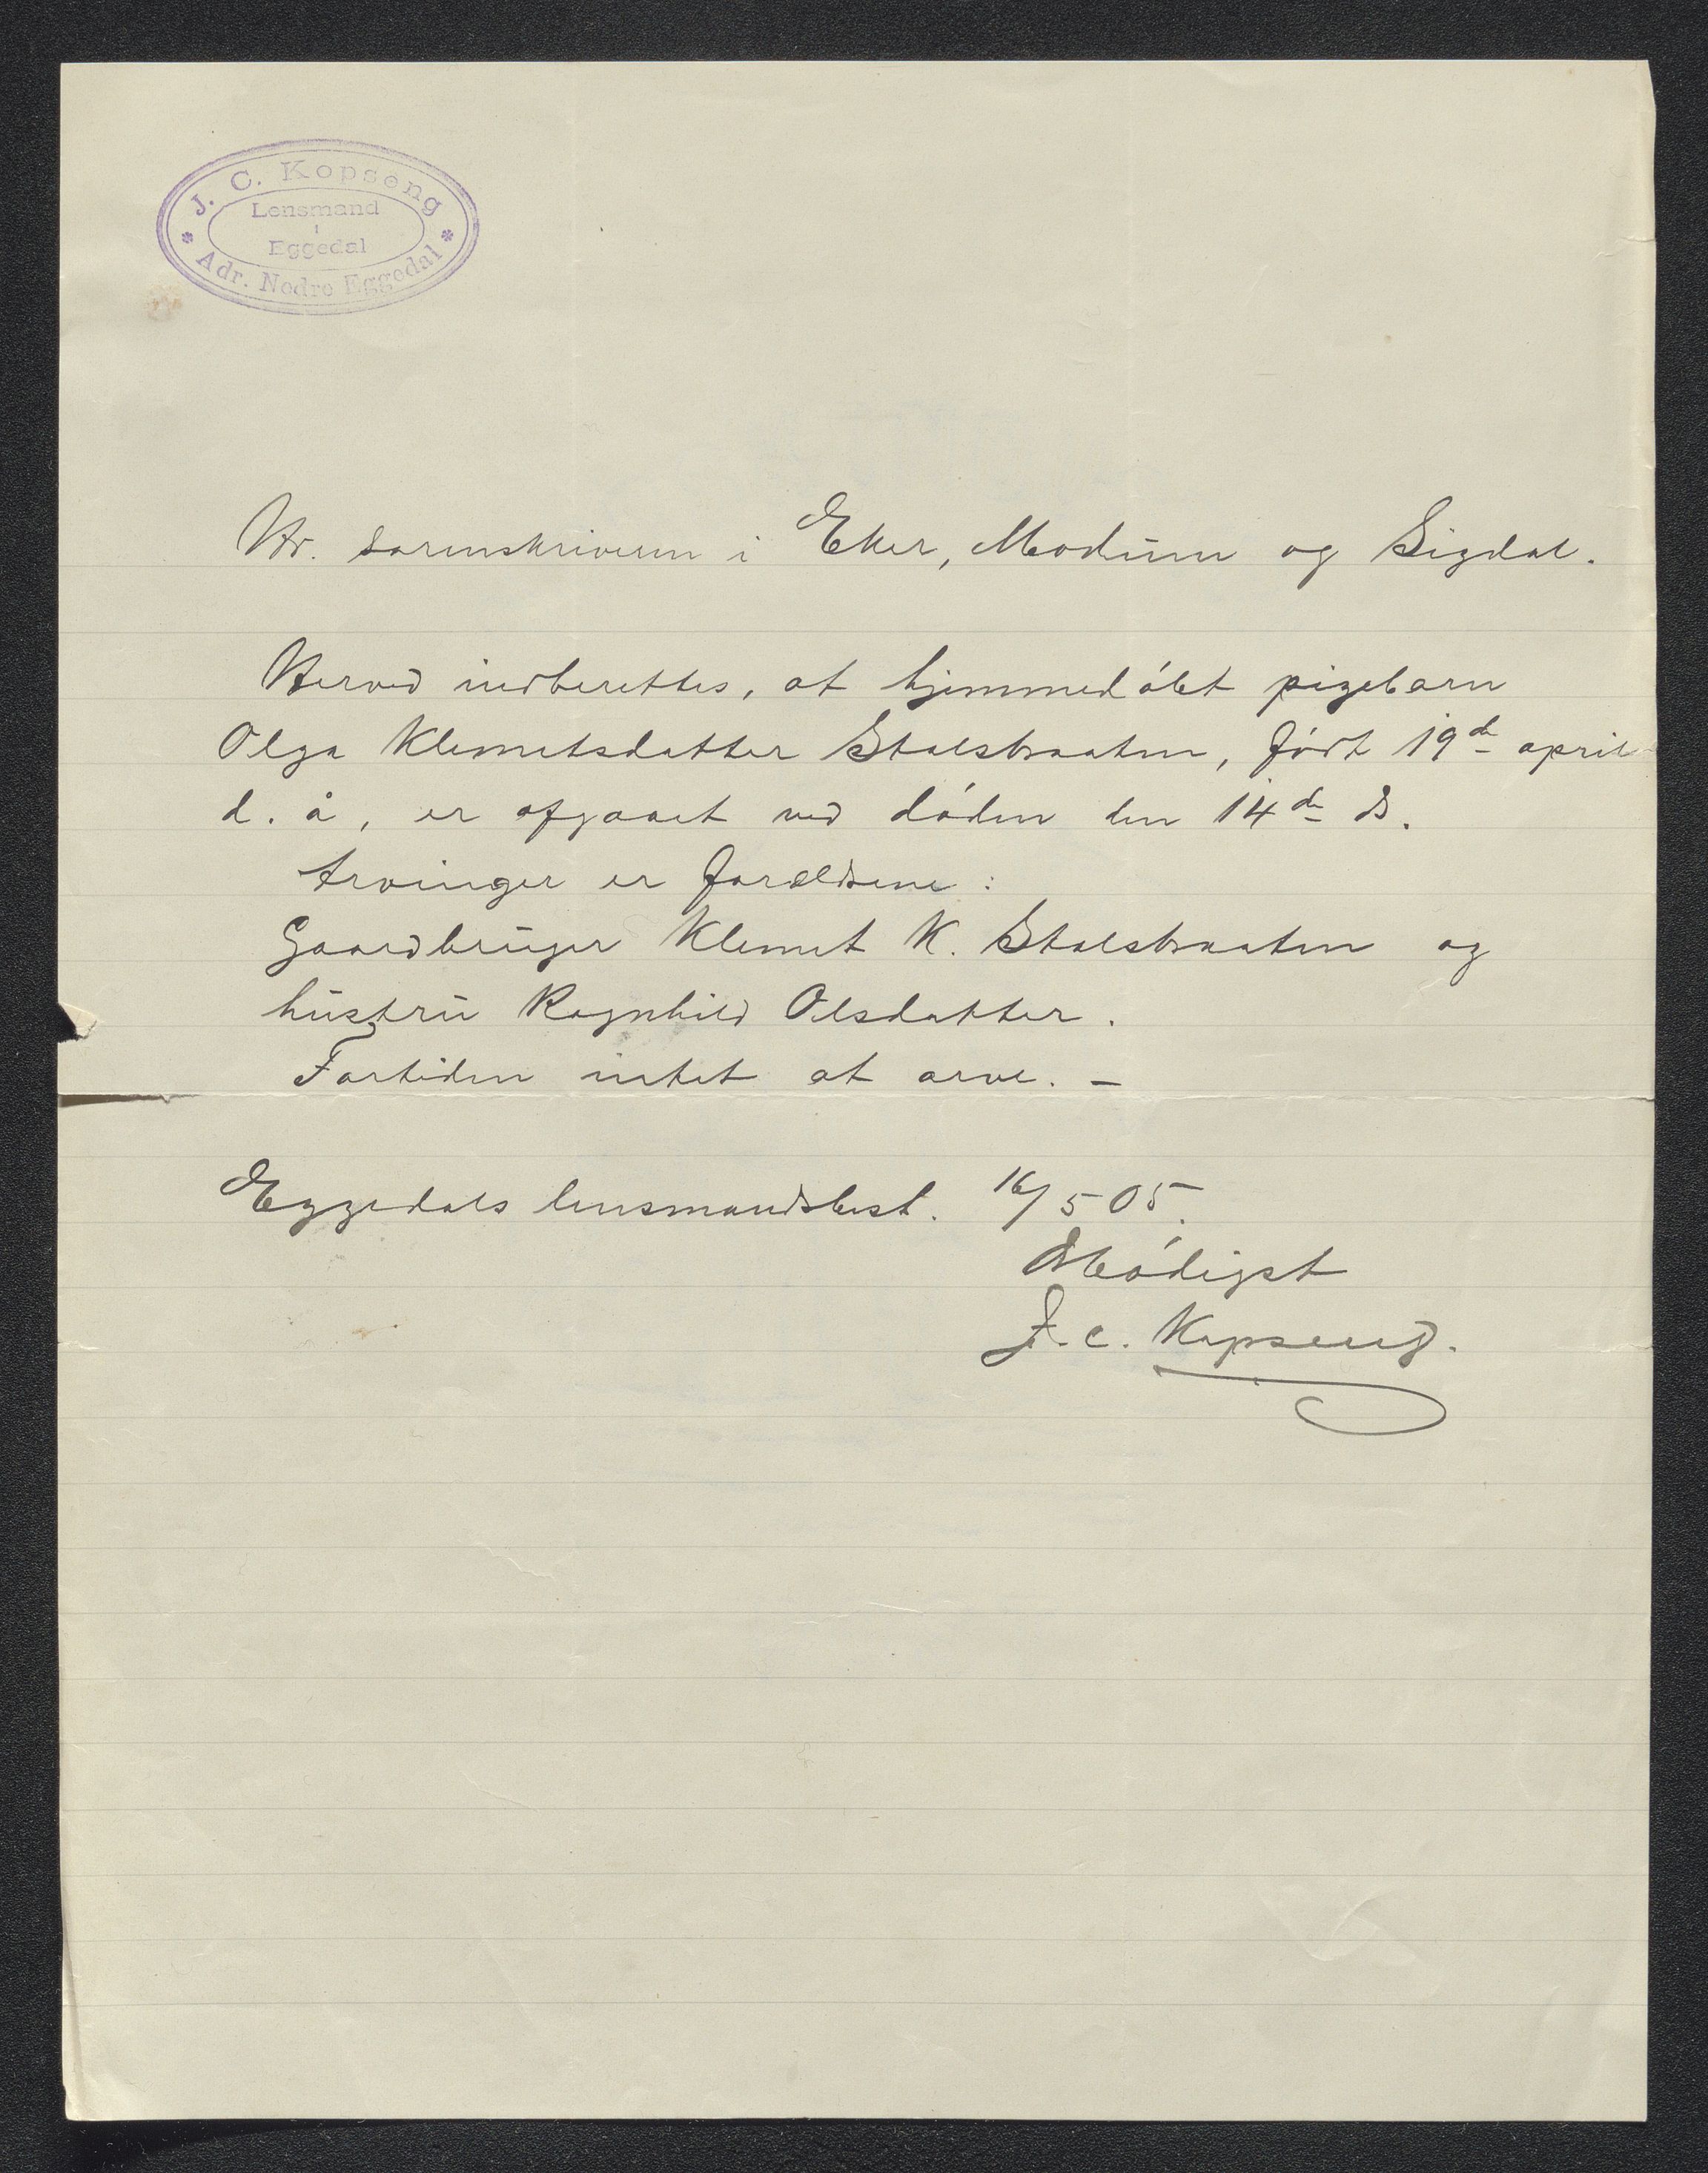 J. C. Kopseng
Lensmand
i
Eggedal
Adr. Nedre Eggedal
Hr. sorenskriveren i Eker, Modum og Sigdal.
Herved indberettes, at hjemmedøbt pigebarn
Olga Klemetsdatter Stalsbraaten, født 19de april
d. å, er afgaaet ved døden den 14de ds.
Arvinger er forældrene:
Gaardbruger Klemet K. Stalsbraaten og
hustru Ragnhild Olsdatter.
Fortiden intet at arve. -
Eggedals lensmandsbest. 16/5 05.
Ærbødigst
J. C. Kopseng.